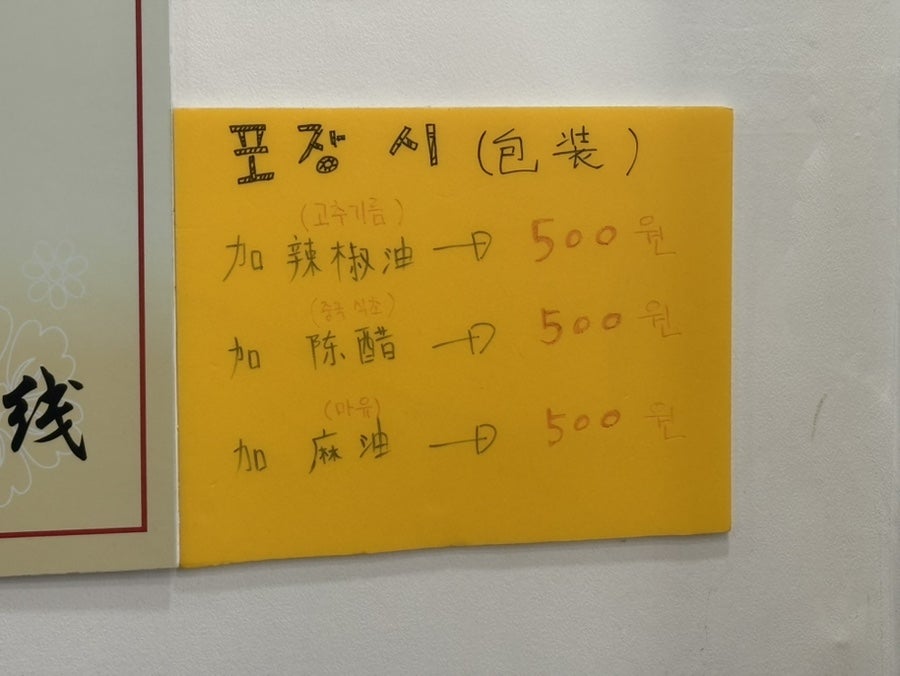 포장 시 (包装)
(고추기름)
加 辣椒油 → 500 원
(중국 식초)
加 陈醋 → 500 원
(마유)
加 麻油 → 500 원
线